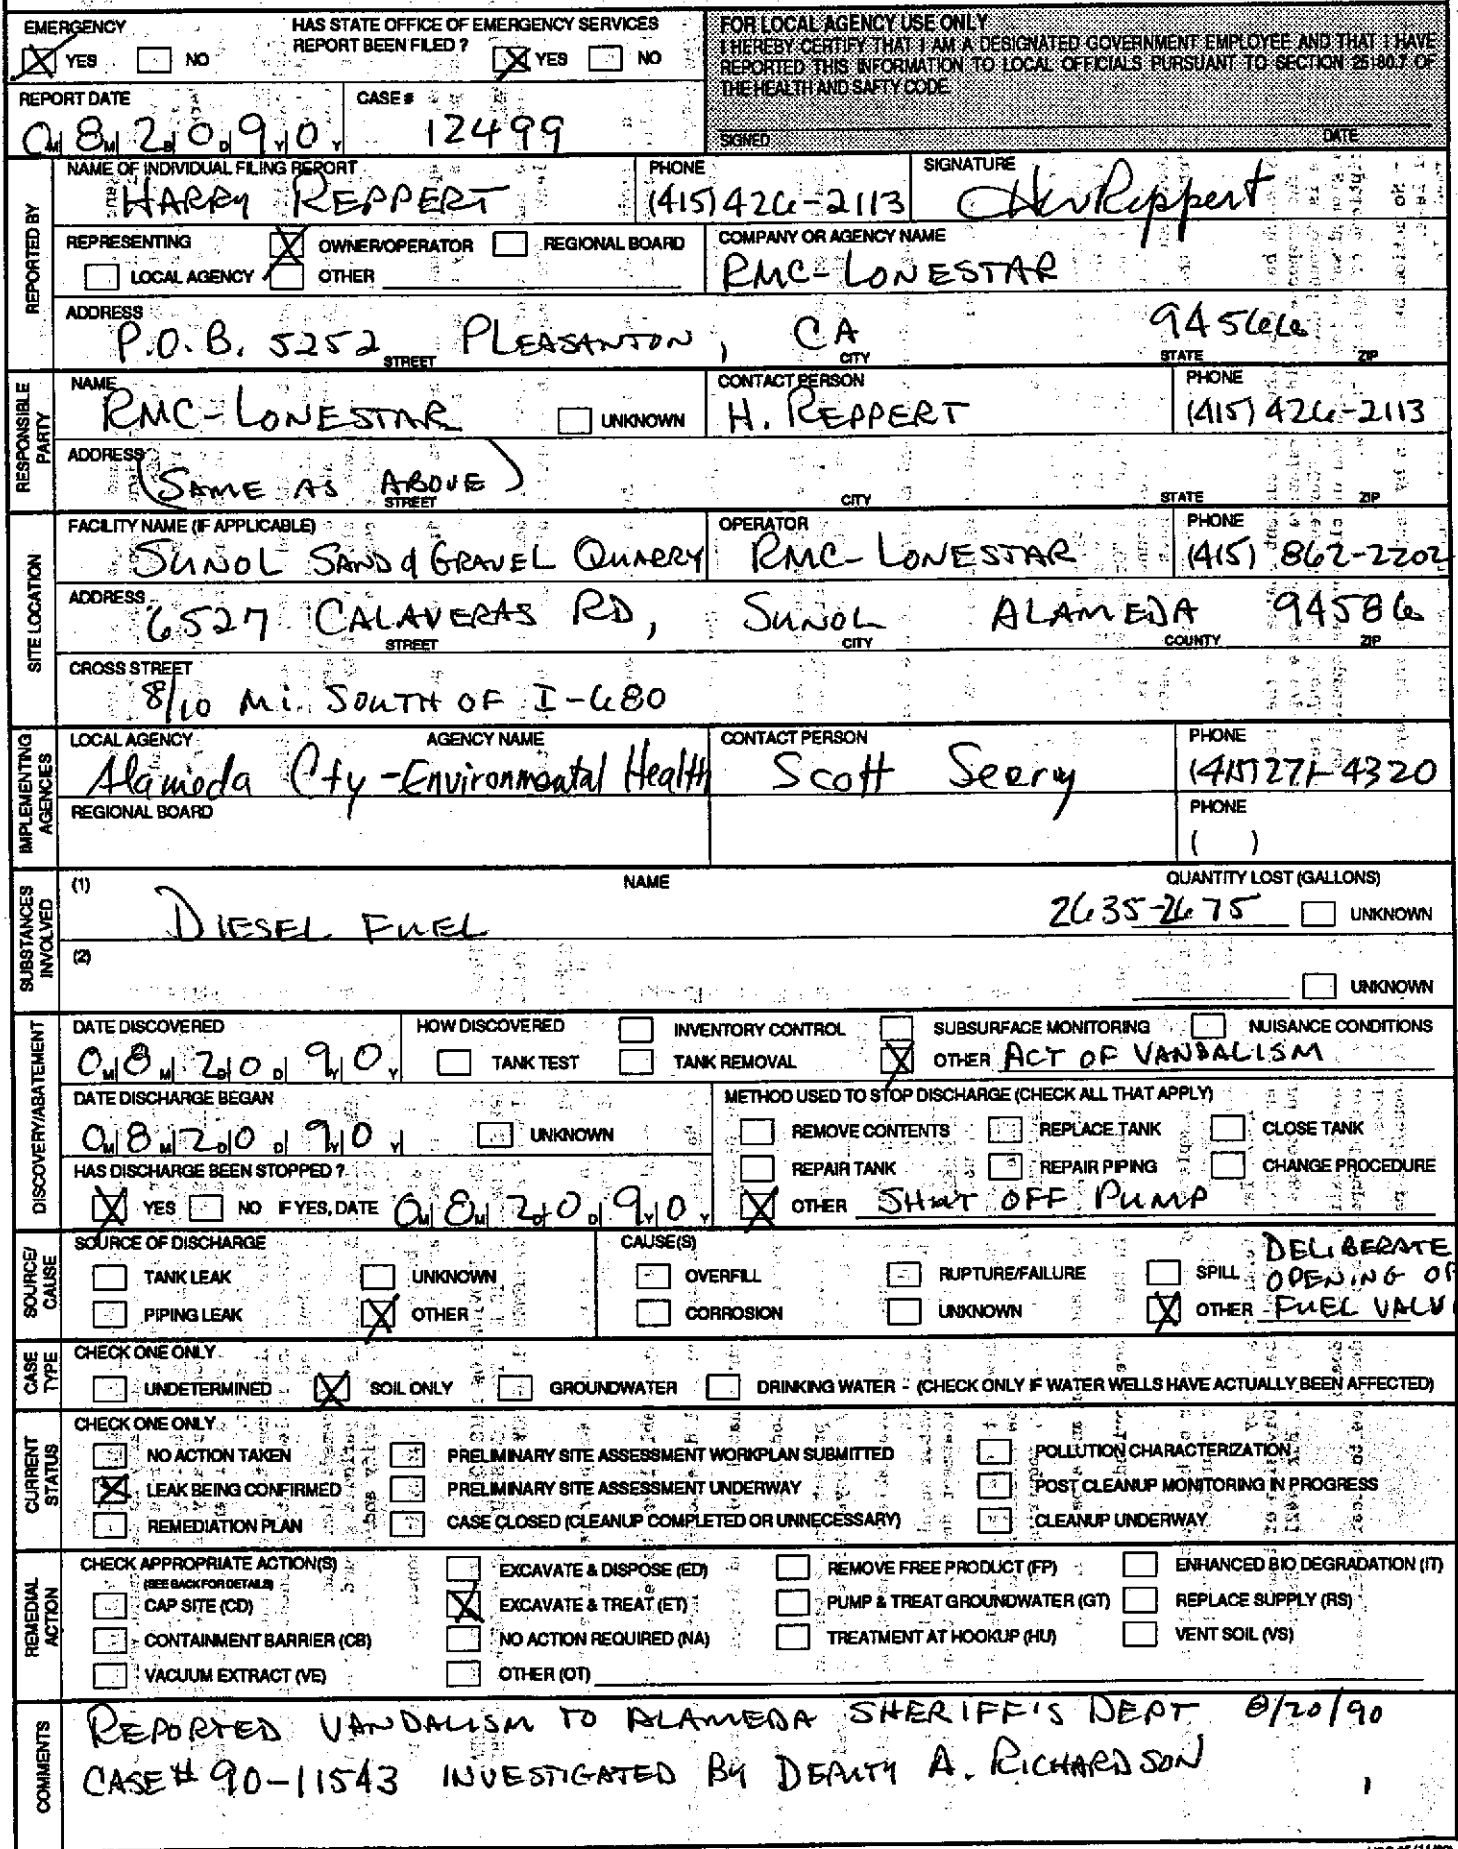 EMERGENCY
YES NO
HAS STATE OFFICE OF EMERGENCY SERVICES
REPORT BEEN FILED ? YES NO
FOR LOCAL AGENCY USE ONLY
I HEREBY CERTIFY THAT I AM A DESIGNATED GOVERNMENT EMPLOYEE AND THAT I HAVE
REPORTED THIS INFORMATION TO LOCAL OFFICIALS PURSUANT TO SECTION 25180.7 OF
THE HEALTH AND SAFTY CODE.
SIGNED DATE
REPORT DATE
08 20 90
CASE #
12499
REPORTED BY
NAME OF INDIVIDUAL FILING REPORT
HARRY REPPERT
PHONE
(415) 426-2113
SIGNATURE
REPRESENTING OWNER/OPERATOR REGIONAL BOARD
LOCAL AGENCY OTHER
COMPANY OR AGENCY NAME
RMC-LONESTAR
ADDRESS
P.O.B. 5252 PLEASANTON, CA 94566
STREET CITY STATE ZIP
RESPONSIBLE PARTY
NAME
RMC-LONESTAR UNKNOWN
CONTACT PERSON
H. REPPERT
PHONE
(415) 426-2113
ADDRESS
(SAME AS ABOVE)
STREET CITY STATE ZIP
SITE LOCATION
FACILITY NAME (IF APPLICABLE)
SUNOL SAND & GRAVEL QUARRY
OPERATOR
RMC-LONESTAR
PHONE
(415) 862-2202
ADDRESS
6527 CALAVERAS RD, SUNOL ALAMEDA 94586
STREET CITY COUNTY ZIP
CROSS STREET
8/10 MI. SOUTH OF I-680
IMPLEMENTING AGENCIES
LOCAL AGENCY AGENCY NAME
Alameda Cty-Environmental Health
CONTACT PERSON
Scott Seery
PHONE
(415) 271-4320
REGIONAL BOARD
PHONE
( )
SUBSTANCES INVOLVED
(1) NAME QUANTITY LOST (GALLONS)
DIESEL FUEL 2635-2675 UNKNOWN
(2)
UNKNOWN
DISCOVERY/ABATEMENT
DATE DISCOVERED
08 20 90
HOW DISCOVERED INVENTORY CONTROL SUBSURFACE MONITORING NUISANCE CONDITIONS
TANK TEST TANK REMOVAL OTHER ACT OF VANDALISM
DATE DISCHARGE BEGAN
08 20 90 UNKNOWN
METHOD USED TO STOP DISCHARGE (CHECK ALL THAT APPLY)
REMOVE CONTENTS REPLACE TANK CLOSE TANK
REPAIR TANK REPAIR PIPING CHANGE PROCEDURE
HAS DISCHARGE BEEN STOPPED ?
YES NO IF YES, DATE 08 20 90
OTHER SHUT OFF PUMP
SOURCE/CAUSE
SOURCE OF DISCHARGE
TANK LEAK UNKNOWN
PIPING LEAK OTHER
CAUSE(S)
OVERFILL RUPTURE/FAILURE SPILL
CORROSION UNKNOWN OTHER
DELIBERATE
OPENING OF
FUEL VALV
CASE TYPE
CHECK ONE ONLY
UNDETERMINED SOIL ONLY GROUNDWATER DRINKING WATER - (CHECK ONLY IF WATER WELLS HAVE ACTUALLY BEEN AFFECTED)
CURRENT STATUS
CHECK ONE ONLY
NO ACTION TAKEN PRELIMINARY SITE ASSESSMENT WORKPLAN SUBMITTED POLLUTION CHARACTERIZATION
LEAK BEING CONFIRMED PRELIMINARY SITE ASSESSMENT UNDERWAY POST CLEANUP MONITORING IN PROGRESS
REMEDIATION PLAN CASE CLOSED (CLEANUP COMPLETED OR UNNECESSARY) CLEANUP UNDERWAY
REMEDIAL ACTION
CHECK APPROPRIATE ACTION(S)
(SEE BACK FOR DETAILS)
EXCAVATE & DISPOSE (ED) REMOVE FREE PRODUCT (FP) ENHANCED BIO DEGRADATION (IT)
CAP SITE (CD) EXCAVATE & TREAT (ET) PUMP & TREAT GROUNDWATER (GT) REPLACE SUPPLY (RS)
CONTAINMENT BARRIER (CB) NO ACTION REQUIRED (NA) TREATMENT AT HOOKUP (HU) VENT SOIL (VS)
VACUUM EXTRACT (VE) OTHER (OT)
COMMENTS
REPORTED VANDALISM TO ALAMEDA SHERIFF'S DEPT 8/20/90
CASE # 90-11543 INVESTIGATED BY DEPUTY A. RICHARDSON